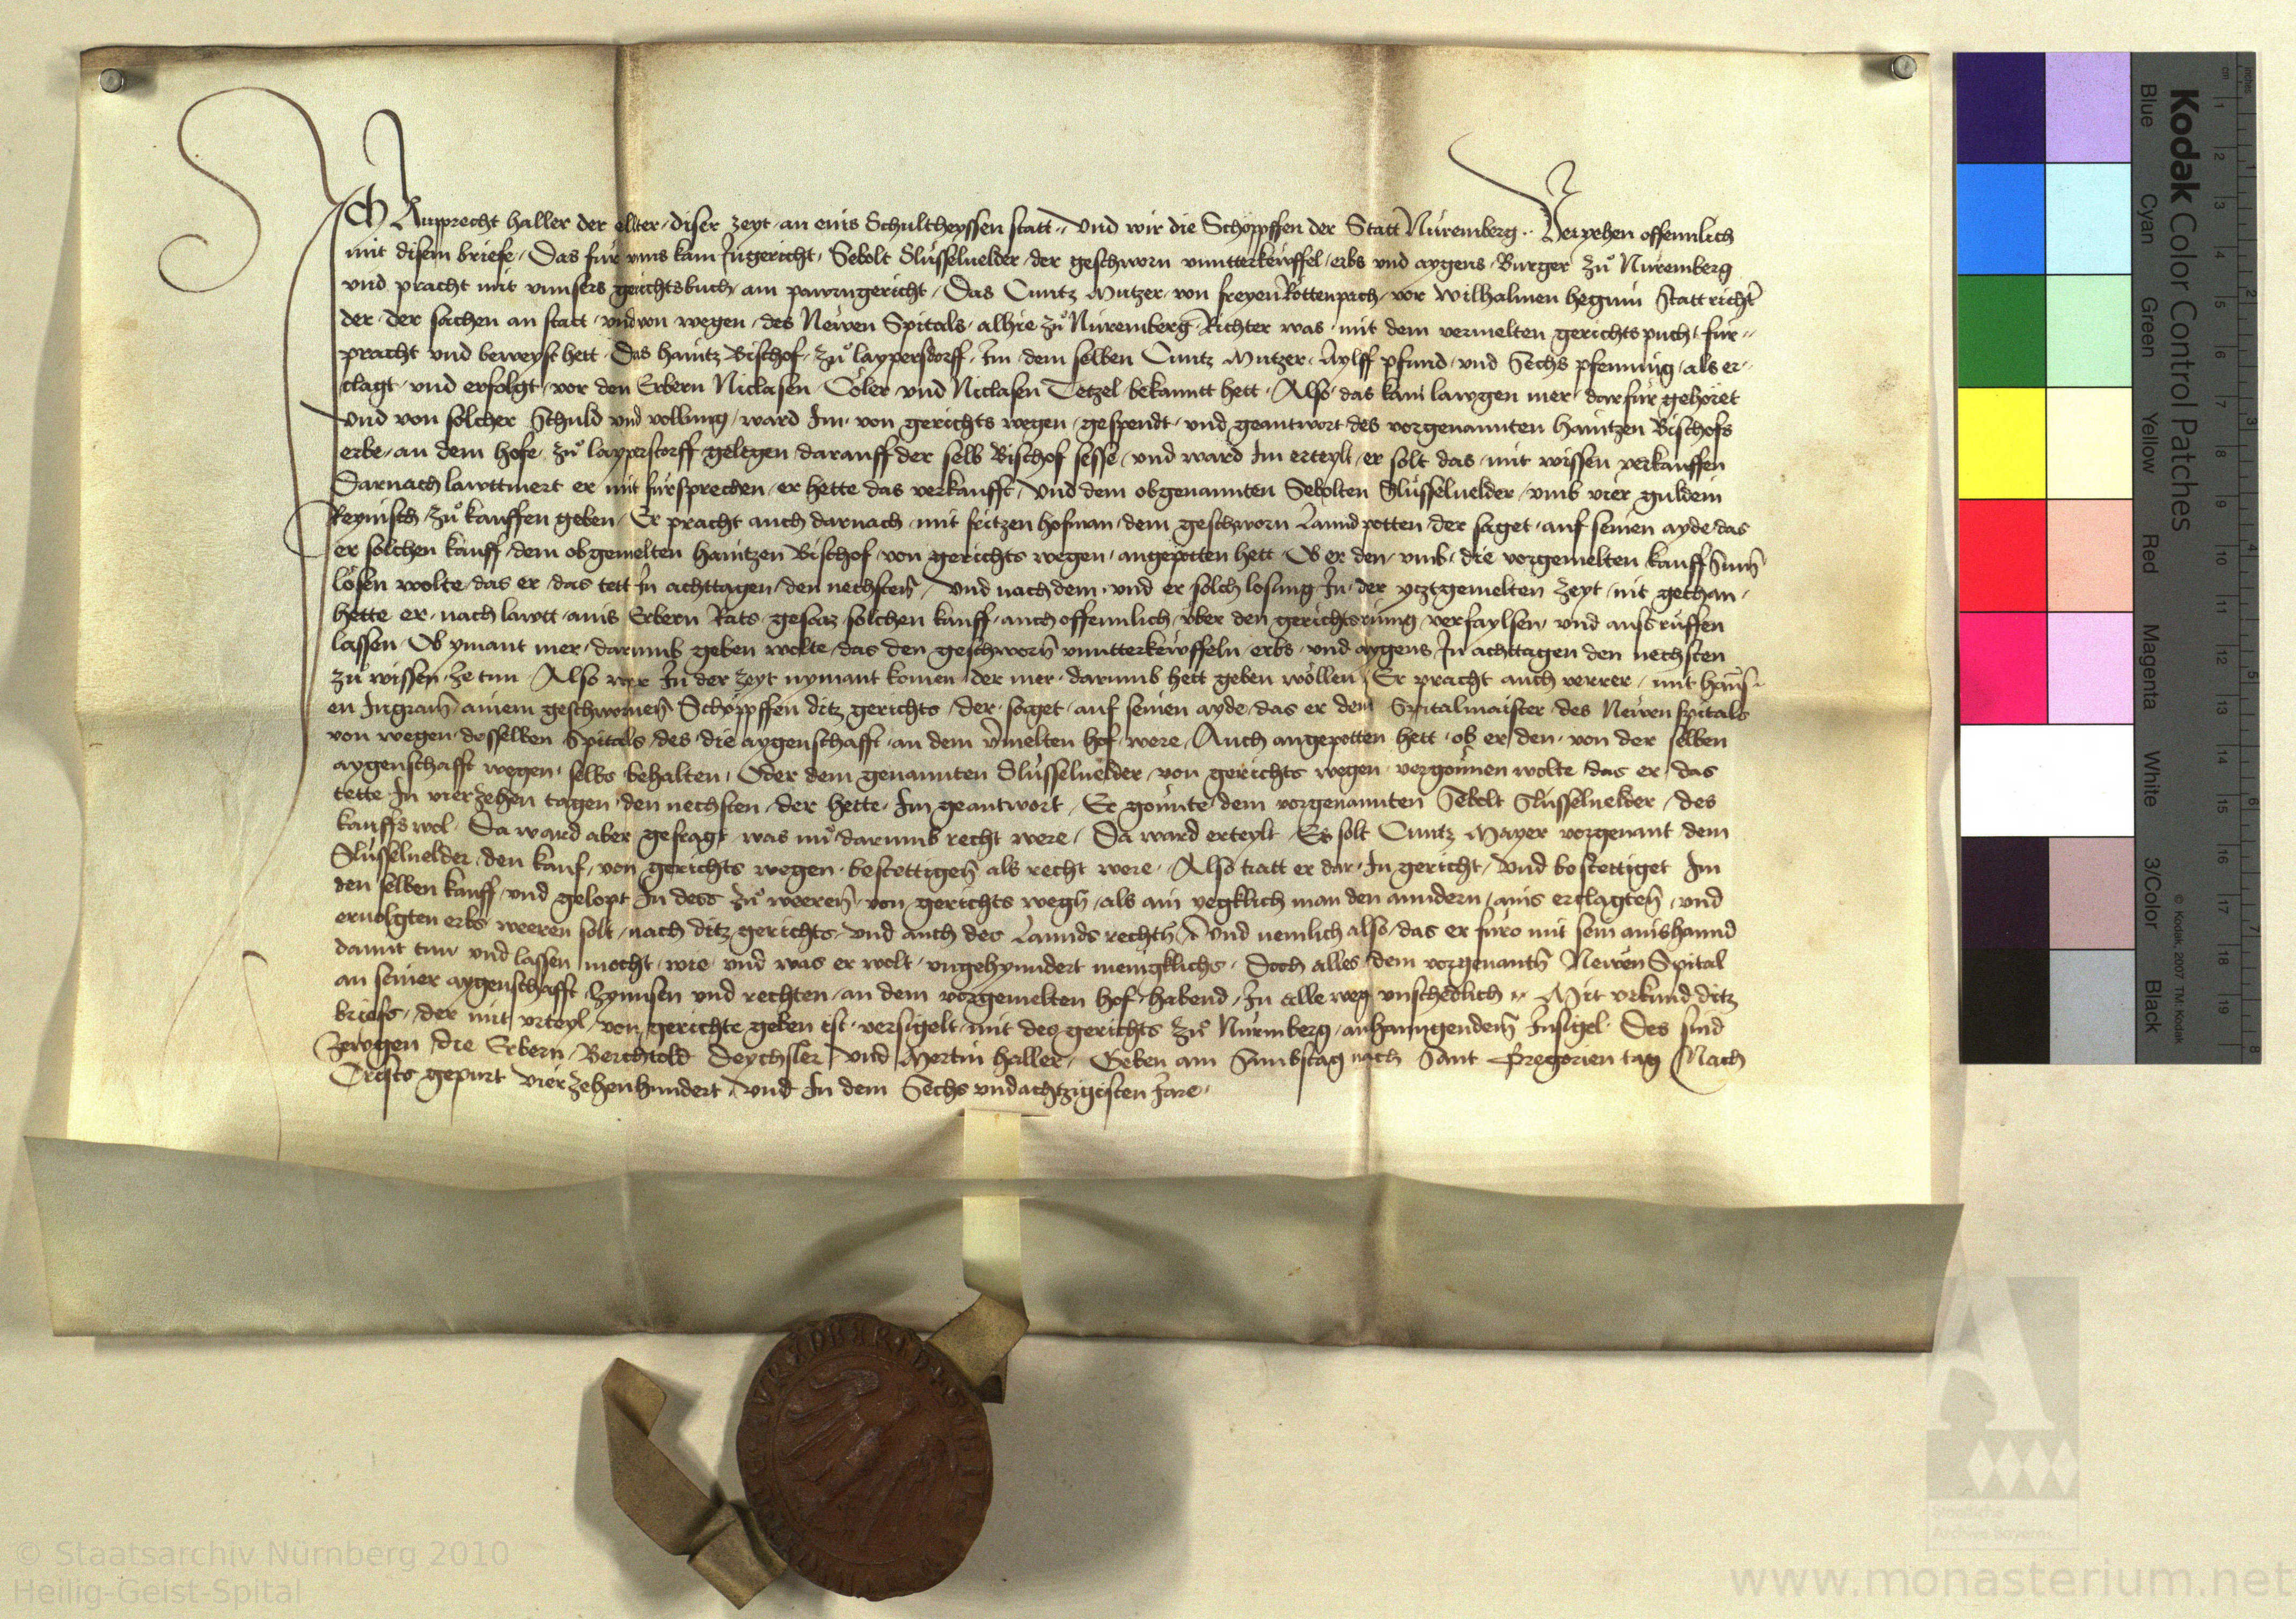 Ich Rupprecht haller der ellter / diser zeyt / an eins Schultheyssen statt / Und wir die Schöppffen der Statt Nüremberg / Veryehen offennlich
mit disem briefe / Das für vnns kam Ingericht / Sebolt Slüsseluelder / der geschworn vnntterkewffel / erbs vnd aygens / Burger zů Nüremberg
vnd pracht mit vnnsers gerichtsbuch / am pawrngericht / Das Cuntz Mutzer / von freyen Rottenpach / vor Wilhalmen hegnin Stattricht̃
der / der sachen an statt / vnd von wegen / des Newen Spitals / alhie zů Nüremberg Richter was / mit dem vermelten gerichtspuch / für
pracht vnd beweyst hett / Das haintz Bischof / zů laypersdorff / Im / dem selben Cuntz Mutzer / Aylff pfund / vnd Sechs pfenning / als er
clagt / vnd erfolgt / vor den Erbern Niclasen Coler / vnd Niclasen Tetzel / bekanntt hett / Also / das kain lawgen mer / darfür gehöret
Und von solcher Schuld vnd vollung / ward Im / von gerichts wegen / gespendt / vnd geantwort / des vorgenannten haintzen Bischofs
erbe / an dem hofe / zů layperstorff gelegen / darauff der selb Bischof sesse / vnd ward Im erteylt / er solt das / mit wissen verkauffen
Darnach lawttmert er mit fürsprechen / er hette das verkaufft / Und dem obgenannten Sebolten Slüsseluelder / vmb vier guldein
Reynisch / zů kauffen geben / Er pracht auch darnach / mit fritzen hofman / dem geschworn Lanndpotten / der saget / auf seinen ayde / das
er solchen kauff / dem obgemelten haintzen Bischof / von gerichts wegen / angepotten hett / Ob er den / vmb / die vorgemelten kauffsum̃
lösen wolte / das er / das tett In achttagen / den nechsten / Und nachdem / vnd er solch losung / In / der yeztgemelten zeyt / nit gethan /
hette er / nach lawtt / ains Erbern Rats / gesacz / solchen kauff / auch offennlich / über den gerichtsrinng / verfaylsen / vnd außrüffen
lassen / Ob ymant mer / darumb geben wolte / das den geschworñ vnntterkewffeln / erbs / vnd aygens / In achttagen den nechsten
zů wissen / ze tun / Also wer In der zeyt nymant komen / der mer / darumb hett geben wöllen / Er pracht auch verrer / mit hanns
en Ingram̃ / ainem geschwornen Schöppffen ditz gerichts / der / saget / auf seinen ayde / das er dem Spitalmaister / des Newen spitals
von wegen / desselben Spitals / des / die aygenschafft / an dem v̈melten hof / were / Auch angepotten hett / ob er den / von der selben
aygenschafft wegen / selbs behalten / Oder dem genannten Slüsselnelder / von gerichts wegen / vergönnen wolte / das er / das
tette / In vierzehen tagen / den nechsten / der hette / Im geantwort / Er gönnte / dem vorgenannten Sebolt Slüsselnelder / des
kauffs wol / Da ward aber gefragt / was nů darumb recht were / Da ward erteylt / Es solt Cuntz Mayer vorgenant / dem
Slüsselnelder / den kauf / von gerichts wegen / bestettigeñ / als recht were / Also tratt er dar / In gericht / Und bestettiget Im
den selben kauff / vnd gelopt In dess zů wereñ / von gerichts wegñ / als ain yegklich man den anndern / ains erclagteñ / vnd
eruolgten erbs weren solt / nach ditz gerichts / vnd auch des Lannds rechtñ / Und nemlich also / das er füro mit sein ainshannd
damit tun vnd lassen mocht / wie / vnd was er wolt / vngehynndert meniglichs / Doch alles / dem vorgenantñ Newen Spital
an seiner aygenschafft / Zynnsen vnd rechten / an dem vorgemelten hof / habend / In alle weg vnschedlich / Mit vrkund ditz
briefs / der mit vrteyl / von gerichte geben ist / versigelt / mit des gerichts zů Nürmberg / anhanngendem̃ Insigel / Des sind
Zewgen / die Erbern / Berchtold Deychsler / Und Mertin haller / Geben am Sambstag nach Sant Gregorien tag / Nach
Crists gepurt vierzehenhundert / Und In dem Sechs vndachtzigisten Jare /
Kodak Color Control Patches
Blue Cyan Green Yellow Red Magenta White 3/Color Black
© Kodak, 2007 TM: Kodak
© Staatsarchiv Nürnberg 2010
Heilig-Geist-Spital
Staatliche
Archive Bayerns
www.monasterium.net